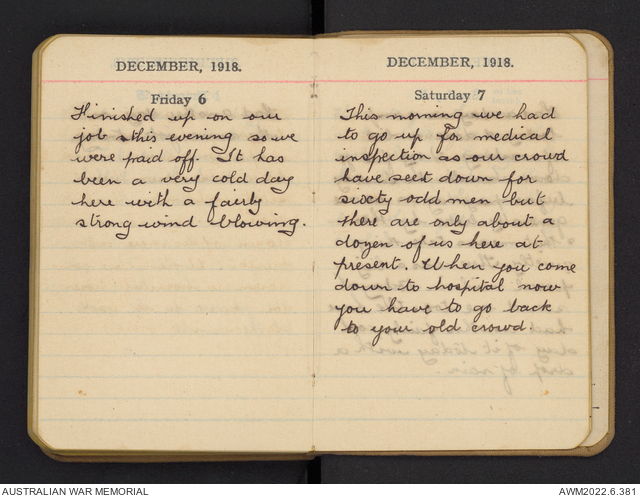 DECEMBER, 1918.
Friday 6
Finished up on our
job this evening so we
were paid off. It has
been a very cold day
here with a fairly
strong wind blowing.
DECEMBER, 1918.
Saturday 7
This morning we had
to go up for medical
inspection as our crowd
have seet down for
sixcty odd men but
there are only about a
dozen of us here at
present. When you come
down to hospital now
you have to go back
to your old crowd.
AUSTRALIAN WAR MEMORIAL
AWM2022.6.381